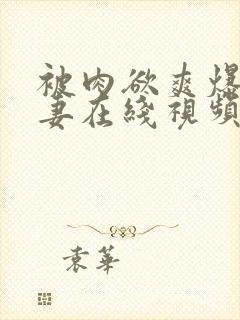 被肉欲爽爆
妻在綫視頻
袁華